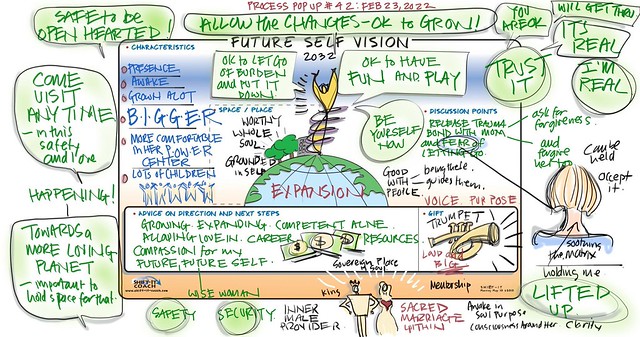 PROCESS POP UP # 42: FEB 23, 2022
SAFE to be
OPEN HEARTED!
ALLOW the CHANGES - OK to GROW!!
YOU
ARE OK
WILL GET THRU
IT'S
REAL
TRUST
IT
I'M
REAL
FUTURE SELF VISION
2032
COME
VISIT
ANYTIME
- in this
safety
and love
HAPPENING!
TOWARDS a
MORE LOVING
PLANET
- important to
hold space for that.
• CHARACTERISTICS
PRESENCE
AWAKE
GROWN ALOT
BIGGER
MORE COMFORTABLE
IN HER POWER
CENTER
LOTS of CHILDREN
OK to LET GO
OF BURDEN
and PUT IT
DOWN
OK to HAVE
FUN AND PLAY
• SPACE / PLACE
WORTHY
WHOLE
SOUL.
GROUNDED
in SELF
BE
YOURSELF
NOW
EXPANSION
GOOD
WITH
PEOPLE
being there
guides them.
• DISCUSSION POINTS
RELEASE TRAUMA
BOND WITH MOM
and FEAR of
LETTING GO.
ask for
forgiveness.
and
forgive
Can be
held
accept
it.
VOICE. PURPOSE
• ADVICE ON DIRECTION AND NEXT STEPS
GROWING. EXPANDING. COMPETENT ALONE.
ALLOWING LOVE IN. CAREER RESOURCES.
COMPASSION for my
FUTURE, FUTURE SELF.
Sovereign Place
of Soul
• GIFT
TRUMPET
LOUD and
BIG
soothing
the MATRIX
holding me
LIFTED
UP
SHIFT-IT
COACH
SHIFT-IT
WISE WOMAN
SAFETY
SECURITY
INNER
MALE
PROVIDER
King
SACRED
MARRIAGE
WITHIN
Mentorship
Awake in
Soul Purpose
Consciousness Around Her
Clarity